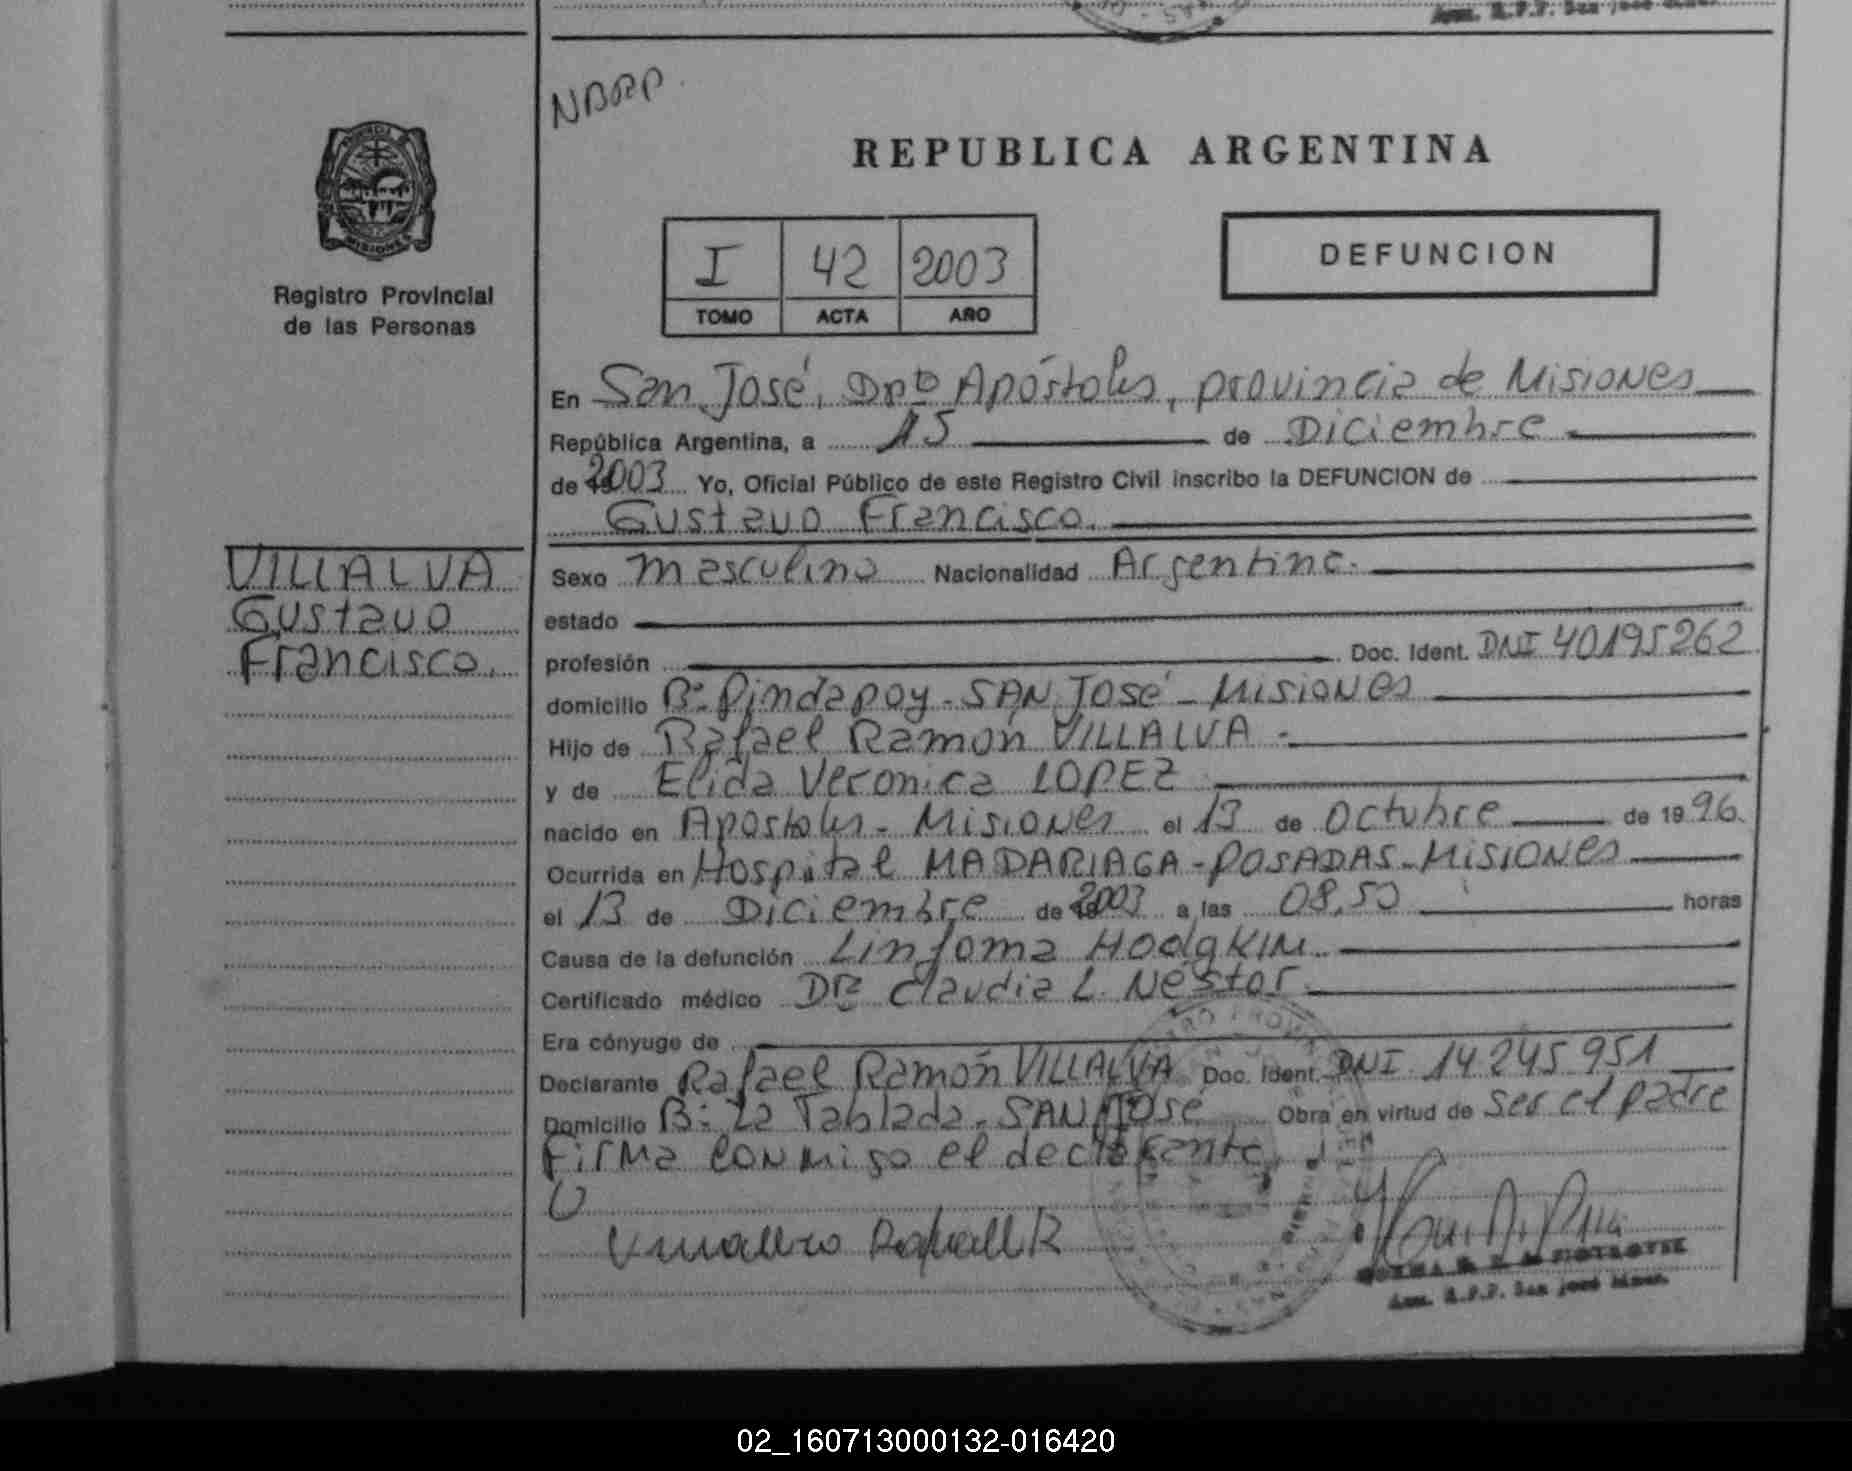 NBRP.
REPUBLICA ARGENTINA
Registro Provincial
de las Personas
I 42 2003
TOMO ACTA AÑO
DEFUNCION
En San José, Dpto Apóstoles, provincia de Misiones
República Argentina, a 15 de Diciembre
de 2003 Yo, Oficial Público de este Registro Civil inscribo la DEFUNCION de
Gustavo Francisco.
VILLALVA
Gustavo
Francisco.
Sexo masculino Nacionalidad Argentina.
estado
profesión Doc. Ident. DNI 40195262
domicilio Bº Pindapoy - SAN José - Misiones
Hijo de Rafael Ramón VILLALVA -
y de Elida Veronica LOPEZ
nacido en Apóstoles - Misiones el 13 de Octubre de 1996.
Ocurrida en Hospital MADARIAGA - POSADAS - Misiones
el 13 de Diciembre de 2003 a las 08,50 horas
Causa de la defunción Linfoma HodgKIN.
Certificado médico DRa Claudia L. Néstor.
Era cónyuge de
Declarante Rafael Ramón VILLALVA Doc. Ident. DNI 14245951
Domicilio Bº La Tablada - SAN José Obra en virtud de ser el padre
Firma conmigo el declarante,
San José
02_160713000132-016420